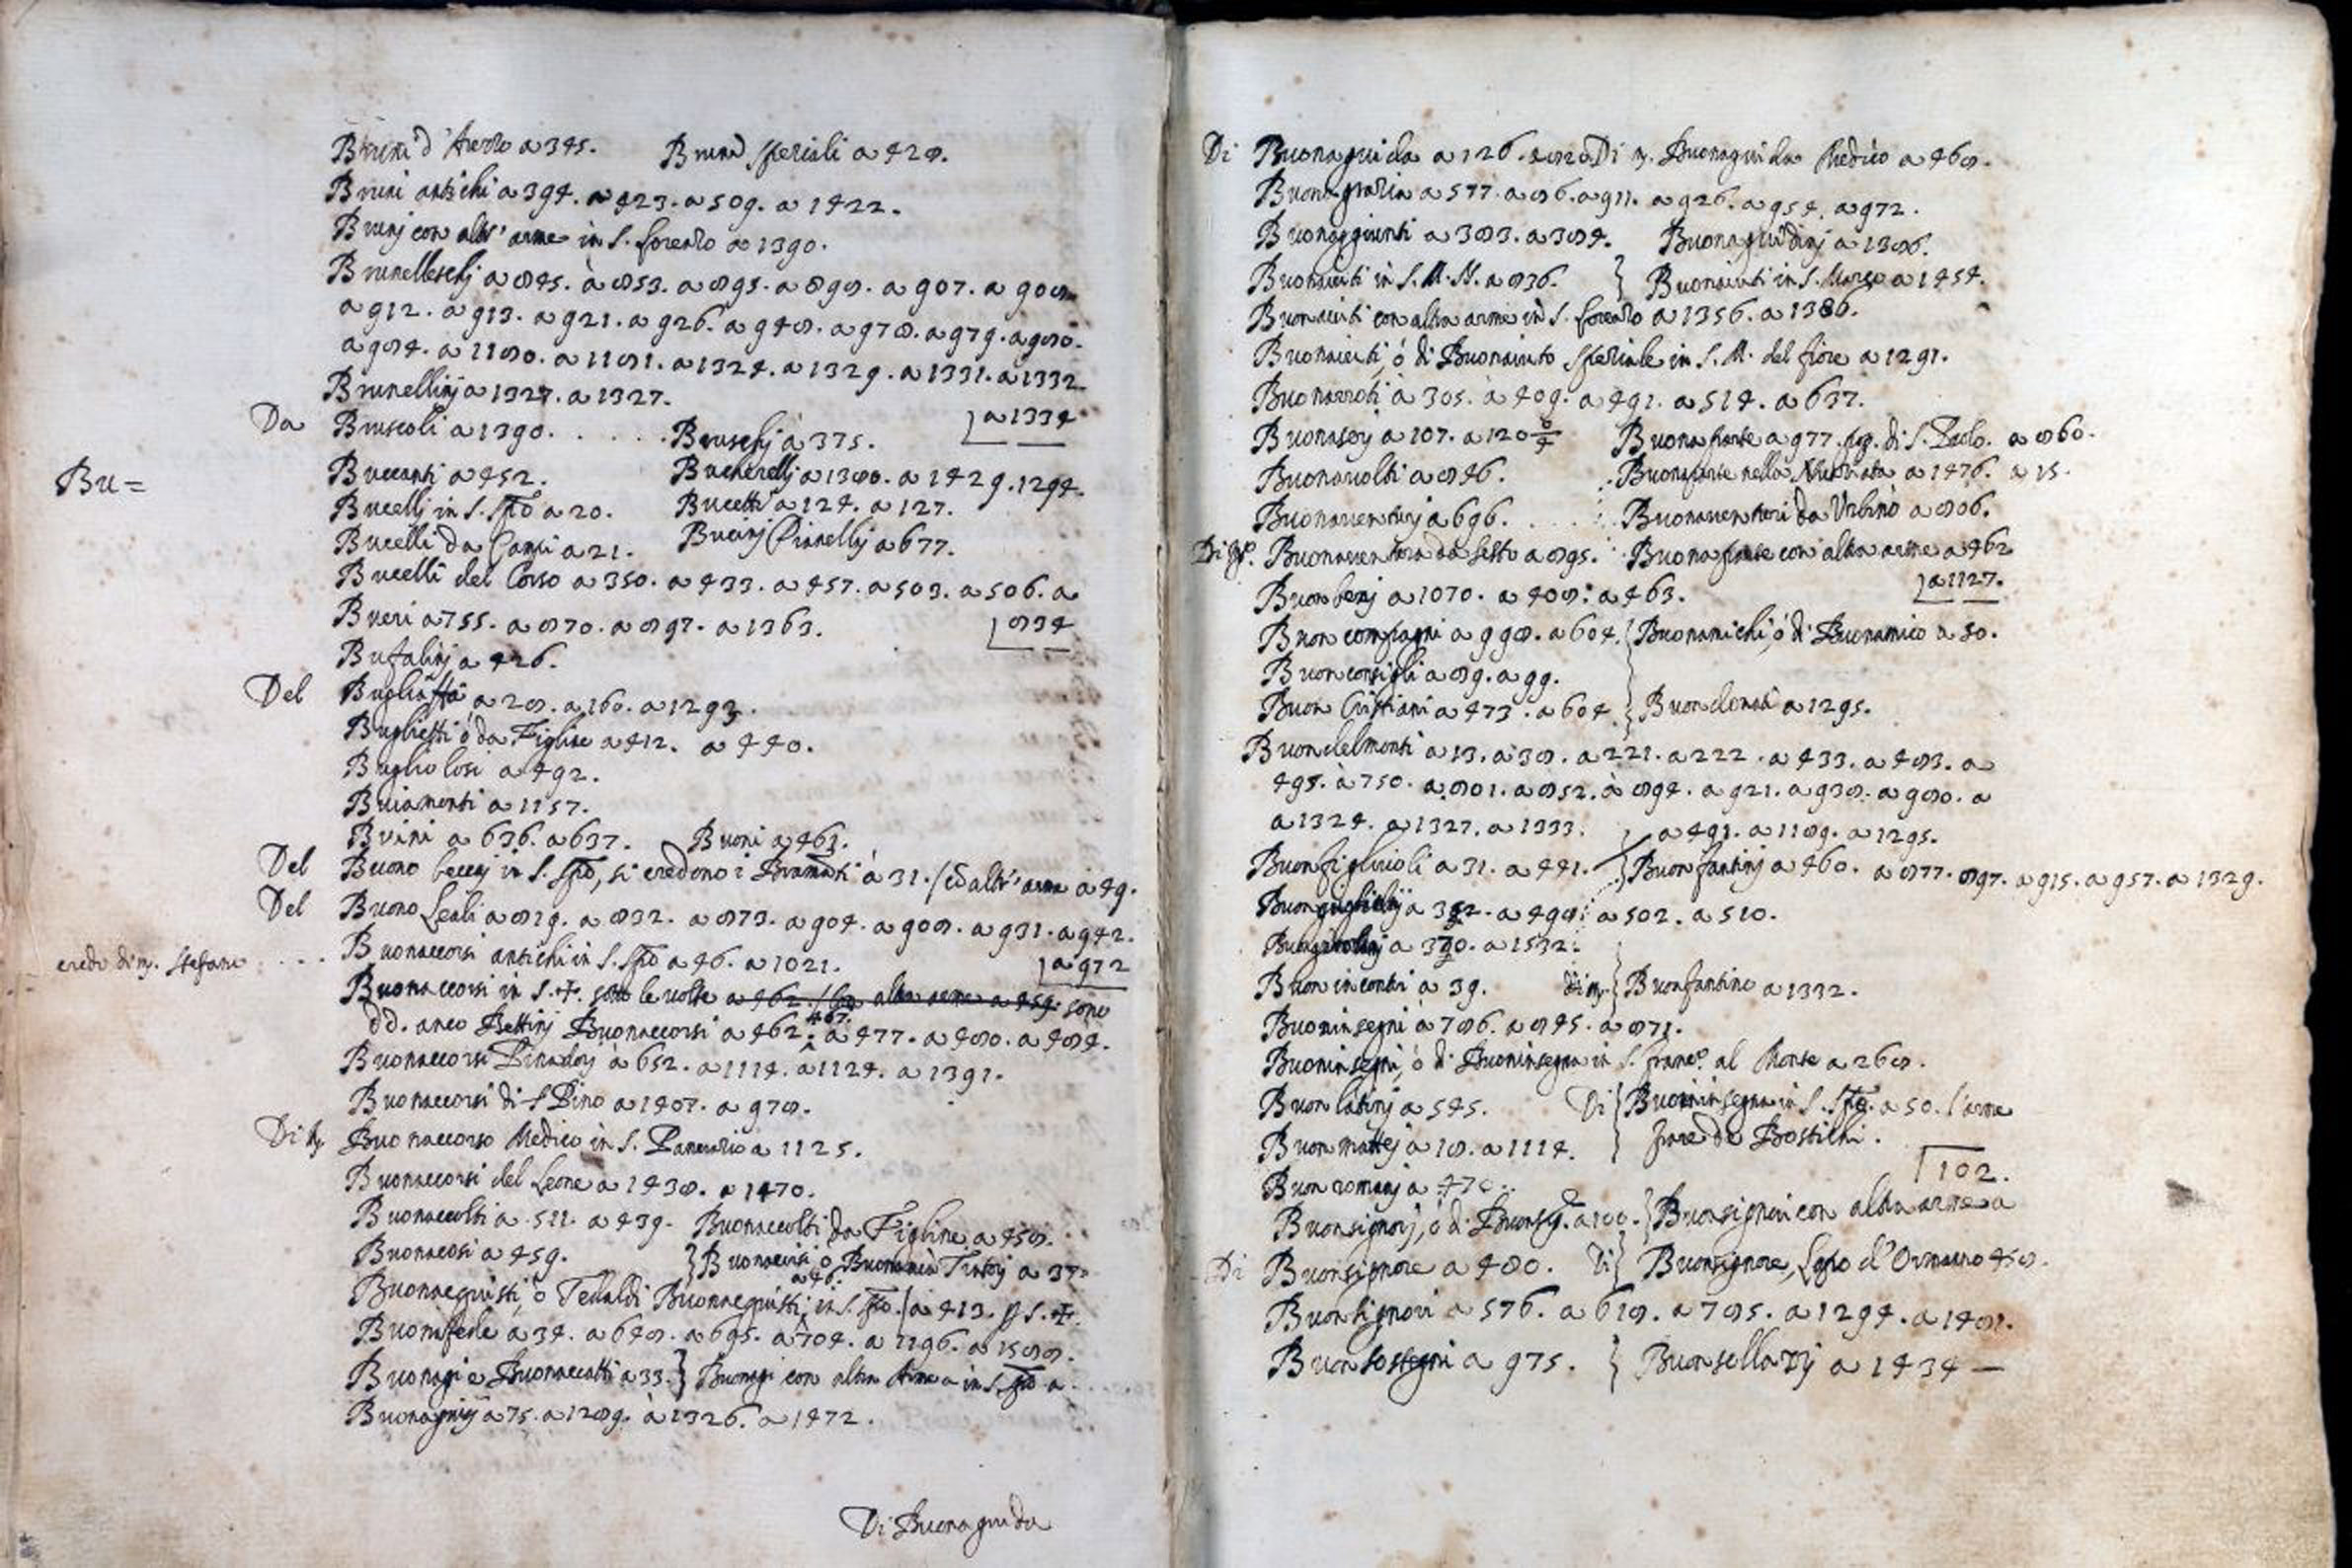 Bruni d'Arezzo a 345. Bruni speziali a 428.
Bruni antichi a 394. a 423. a 509. a 1422.
Brunj con altr'arme in S. Lorenzo a 1390.
Brunelleschj a 845. à 853. a 895. a 898. a 907. a 908
a 912. a 913. a 921. a 926. a 948. a 978. a 979. a 980.
a 984. a 1180. a 1181. a 1324. a 1329. a 1331. a 1332
Brunellinj a 1327. a 1327.
a 1334
Da Bruscoli a 1390. . . . . . Bruschj a 375.
Bu= Buccanti a 452. Bucherellj a 1380. a 1429. 1294.
Bucelli in S. Spto a 20. Bucetti a 124. a 127.
Bucelli da a 21. Bucinj Pianellj a 677.
Bucelli del Corso a 350. a 433. a 457. a 503. a 506. a
834
Bueri a 755. a 870. a 897. a 1363.
Bufalinj a 426.
Del Bugliaffa a 28. a 160. a 1293.
Buglietti ó da Figline a 412. a 440.
Bugliolosi a 492.
Buiamonti a 1157.
Buini a 636. a 637. Buoni a 461.
Del Buono beccaj in S. Spto, si credono i Bramanti à 31. / ed altr'arme a 49.
Del Buono Leali a 819. a 832. a 873. a 904. a 908. a 931. a 942.
a 972
eredi di m. Stefano . . . Buonaccorsi antichi in S. Spto a 46. a 1021.
Buonaccorsi in S. ✝. sotto le volte a 462. / altra arme a 459 sono
467.
dd. anco Bettinj Buonaccorsi a 462. a 477. a 480. a 484.
Buonaccorsi Pinadorj à 652. a 1114. a 1124. a 1391.
Buonaccorsi di S Pino a 1407. a 978.
Di M. Buonaccorso Medico in S. Pancrazio a 1125.
Buonaccorsi del Leone a 1438. a 1470.
Buonaccolti a 511. a 439. Buonaccolti da Figline a 458.
Buonacosi a 459. } Buonavisi o Tintorj a 37
a 46.
Buonacquisti, o Tedaldi Buonacquisti, in S. Spto. / a 413. S. ✝.
Buonafede a 34. a 648. a 695. a 704. a 1196. a 1588.
Buonagi e Buonaccatti a 33. } Buonagi con altra Arma in S. Spto a
Buonagratj a 75. a 1289. à 1326. a 1472.
Di Buonaguida
Di Buonaguida a 126. Di M. Buonaguida Medico a 468.
Buonagrazia a 577. a 86. a 911. a 926. a 954. a 972.
Buonaggiunti a 383. a 384. Buonaguidinj a 1386.
Buonaiuti in S. M. N. a 836. } Buonaiuti in S. Marco a 1454.
Buonaiuti con altra arme in S. Lorenzo a 1356. a 1386.
Buonaiuti, ó di Buonaiuto speziale in S. M. del fiore a 1291.
Buonarroti à 305. à 409. a 491. a 514. a 637.
Buonasorj a 107. a 120 Buonaparte a 977. di S. Paolo. a 860.
Buonavolti a 846. Buonaparte nella Nunziata a 1476. a 15.
Buonaventurj a 696. . . . . Buonaventuri da Urbino a 806.
Di Buonaventura da Sesto a 895. Buonaparte con altra arme a 462
a 1127.
Buonbenj a 1070. a 408. a 463.
Buoncompagni a 998. a 604. { Buonamichi, ó di Buonamico a 50.
Buonconsigli a 89. a 99.
Buon Cristiani a 473. a 604 } Buondonati a 1295.
Buondelmonti a 13. a 38. a 221. a 222. a 433. a 483. a
495. à 750. a 801. a 852. à 894. a 921. a 938. a 980. a
a 1324. a 1327. a 1333. a 491. a 1189. a 1295.
Buonfigliuoli a 31. a 441. } Buonfantinj a 460. a 877. 897. a 915. a 957. a 1329.
a 498. a 502. a 510.
a 1532.
Buonincontri a 39. di M. } Buonfantino a 1332.
Buoninsegni a 786. a 845. a 871.
Buoninsegni, ó di Buoninsegna in S. Franco. al Monte a 268.
Buonlatinj a 545. Di { Buoninsegna in S. Spto. a 50. l'arme
pare de Bostichi.
Buonmattej a 18. a 1114.
102.
Buonromanj a 470.
Buonsignorj, ó di Buonsig. a 100. } Buonsignori con altra arme a
Di Buonsignore a 480. Di } Buonsignore, Lapo d'Ormanno 458.
Buonsignori a 576. a 618. a 785. a 1294. a 1481.
Buonsostegni a 975. } Buonsellarj a 1434 —